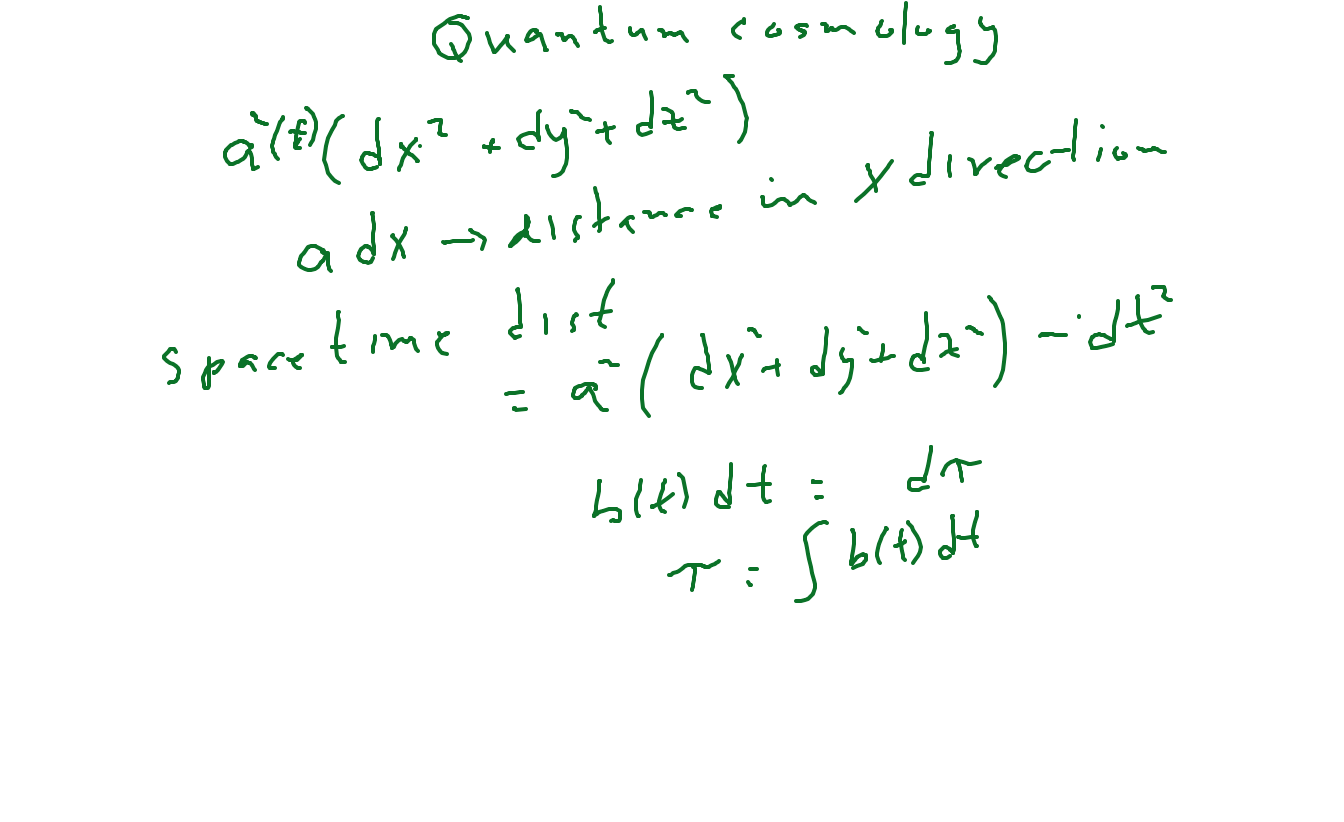 Quantum cosmology
a²(t)(dx² + dy² + dz²)
a dx → distance in x direction
space time dist
= a²(dx² + dy² + dz²) - dt²
b(t) dt = dτ
τ = ∫ b(t) dt